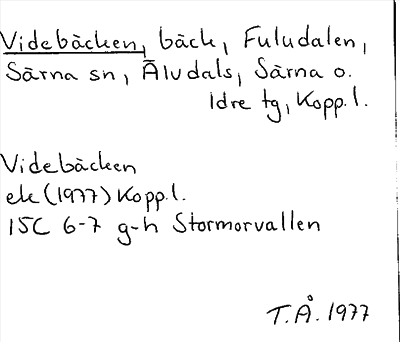 Videbäcken, bäck, Fuludalen,
Särna sn, Älvdals, Särna o.
Idre tg, Kopp.l.
Videbäcken
ek (1977) Kopp.l.
15C 6-7 g-h Stormorvallen
T.Å. 1977